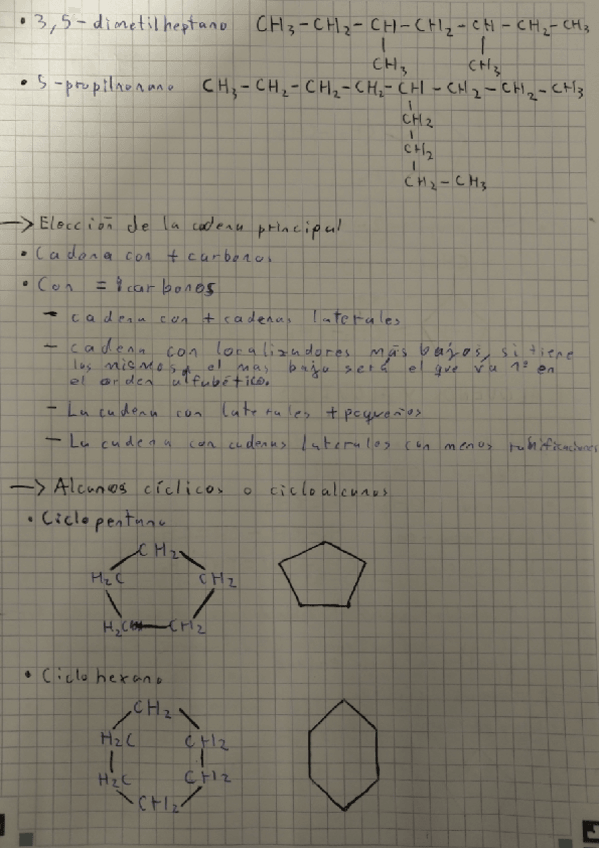 • 3,5-dimetilheptano CH3-CH2-CH-CH2-CH-CH2-CH3
CH3 CH3
• 5-propilnonano CH3-CH2-CH2-CH2-CH-CH2-CH2-CH3
CH2
CH2
CH2-CH3
→ Elección de la cadena principal
• Cadena con + carbonos
• Con = carbonos
- cadena con + cadenas laterales
- cadena con localizadores más bajos, si tiene
los mismos, el mas bajo será el que va 1º en
el orden alfabético.
- La cadena con laterales + pequeños
- La cadena con cadenas laterales con menos ramificaciones
→ Alcanos cíclicos o cicloalcanos
• Ciclopentano
CH2
H2C CH2
H2C CH2
• Ciclohexano
CH2
H2C CH2
H2C CH2
CH2